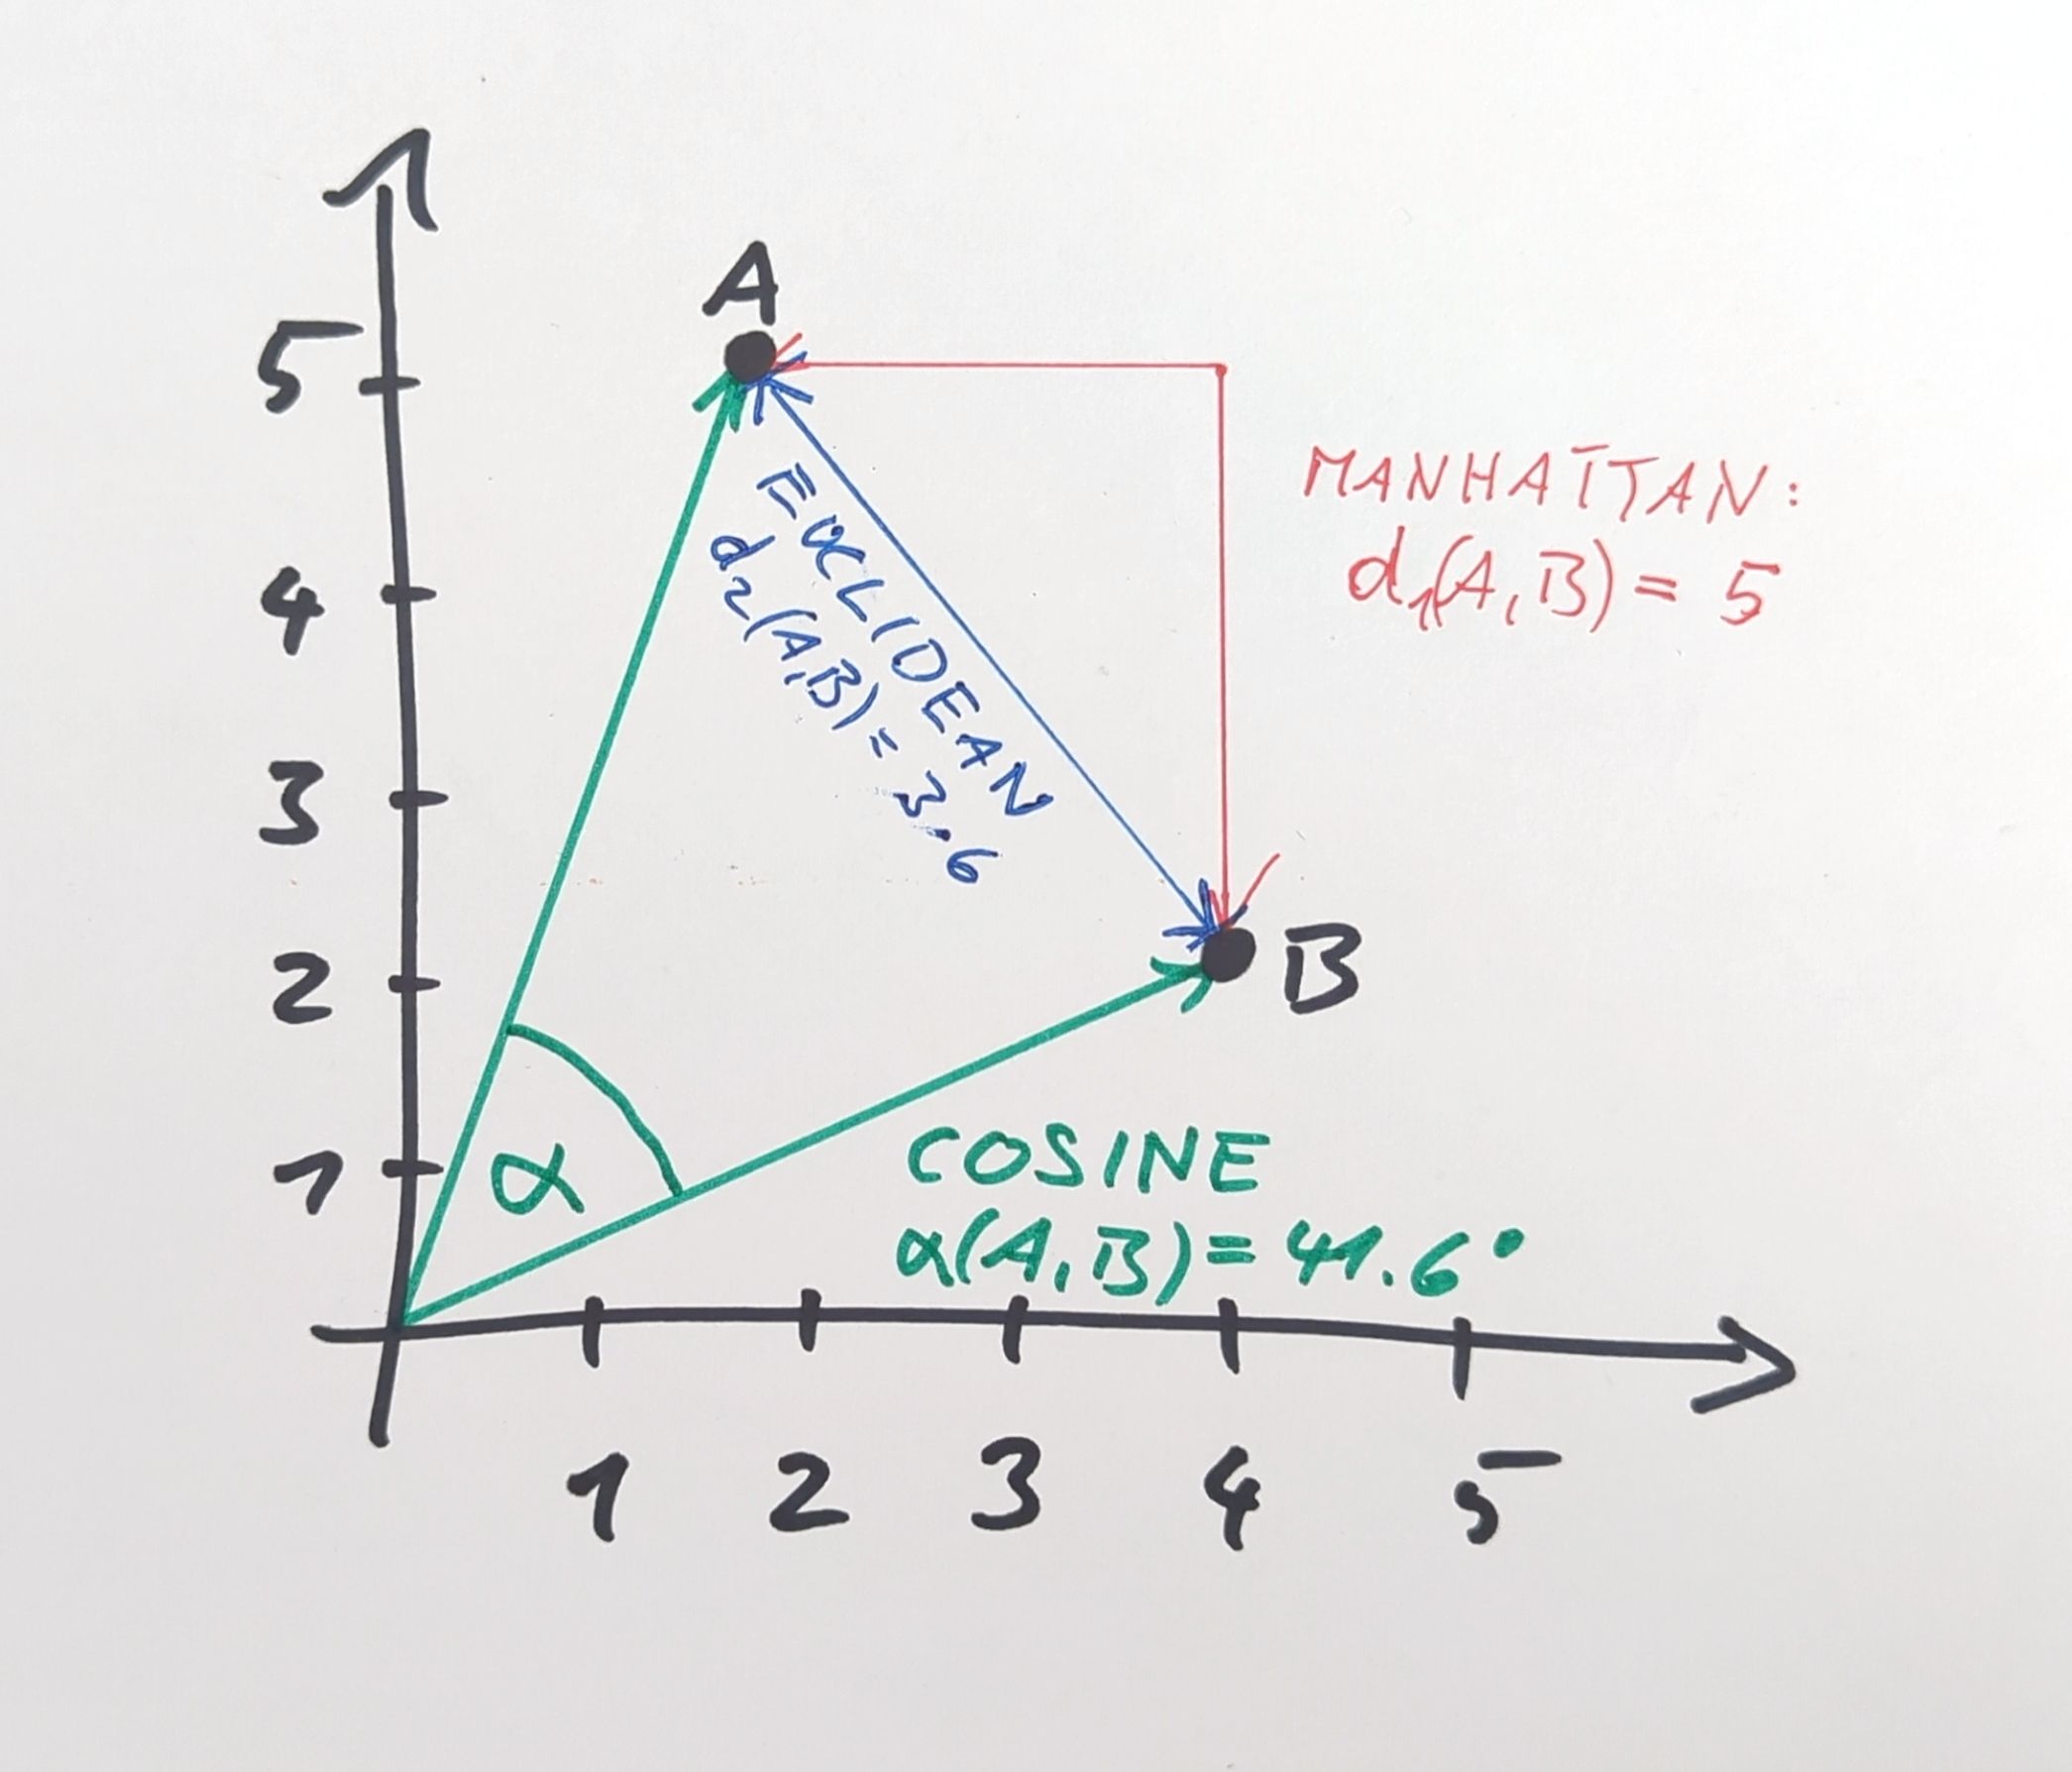 A
5
4
3
2
1
MANHATTAN:
d₁(A,B) = 5
EUCLIDEAN
d₂(A,B) = 3.6
B
α
COSINE
α(A,B) = 41.6°
1
2
3
4
5